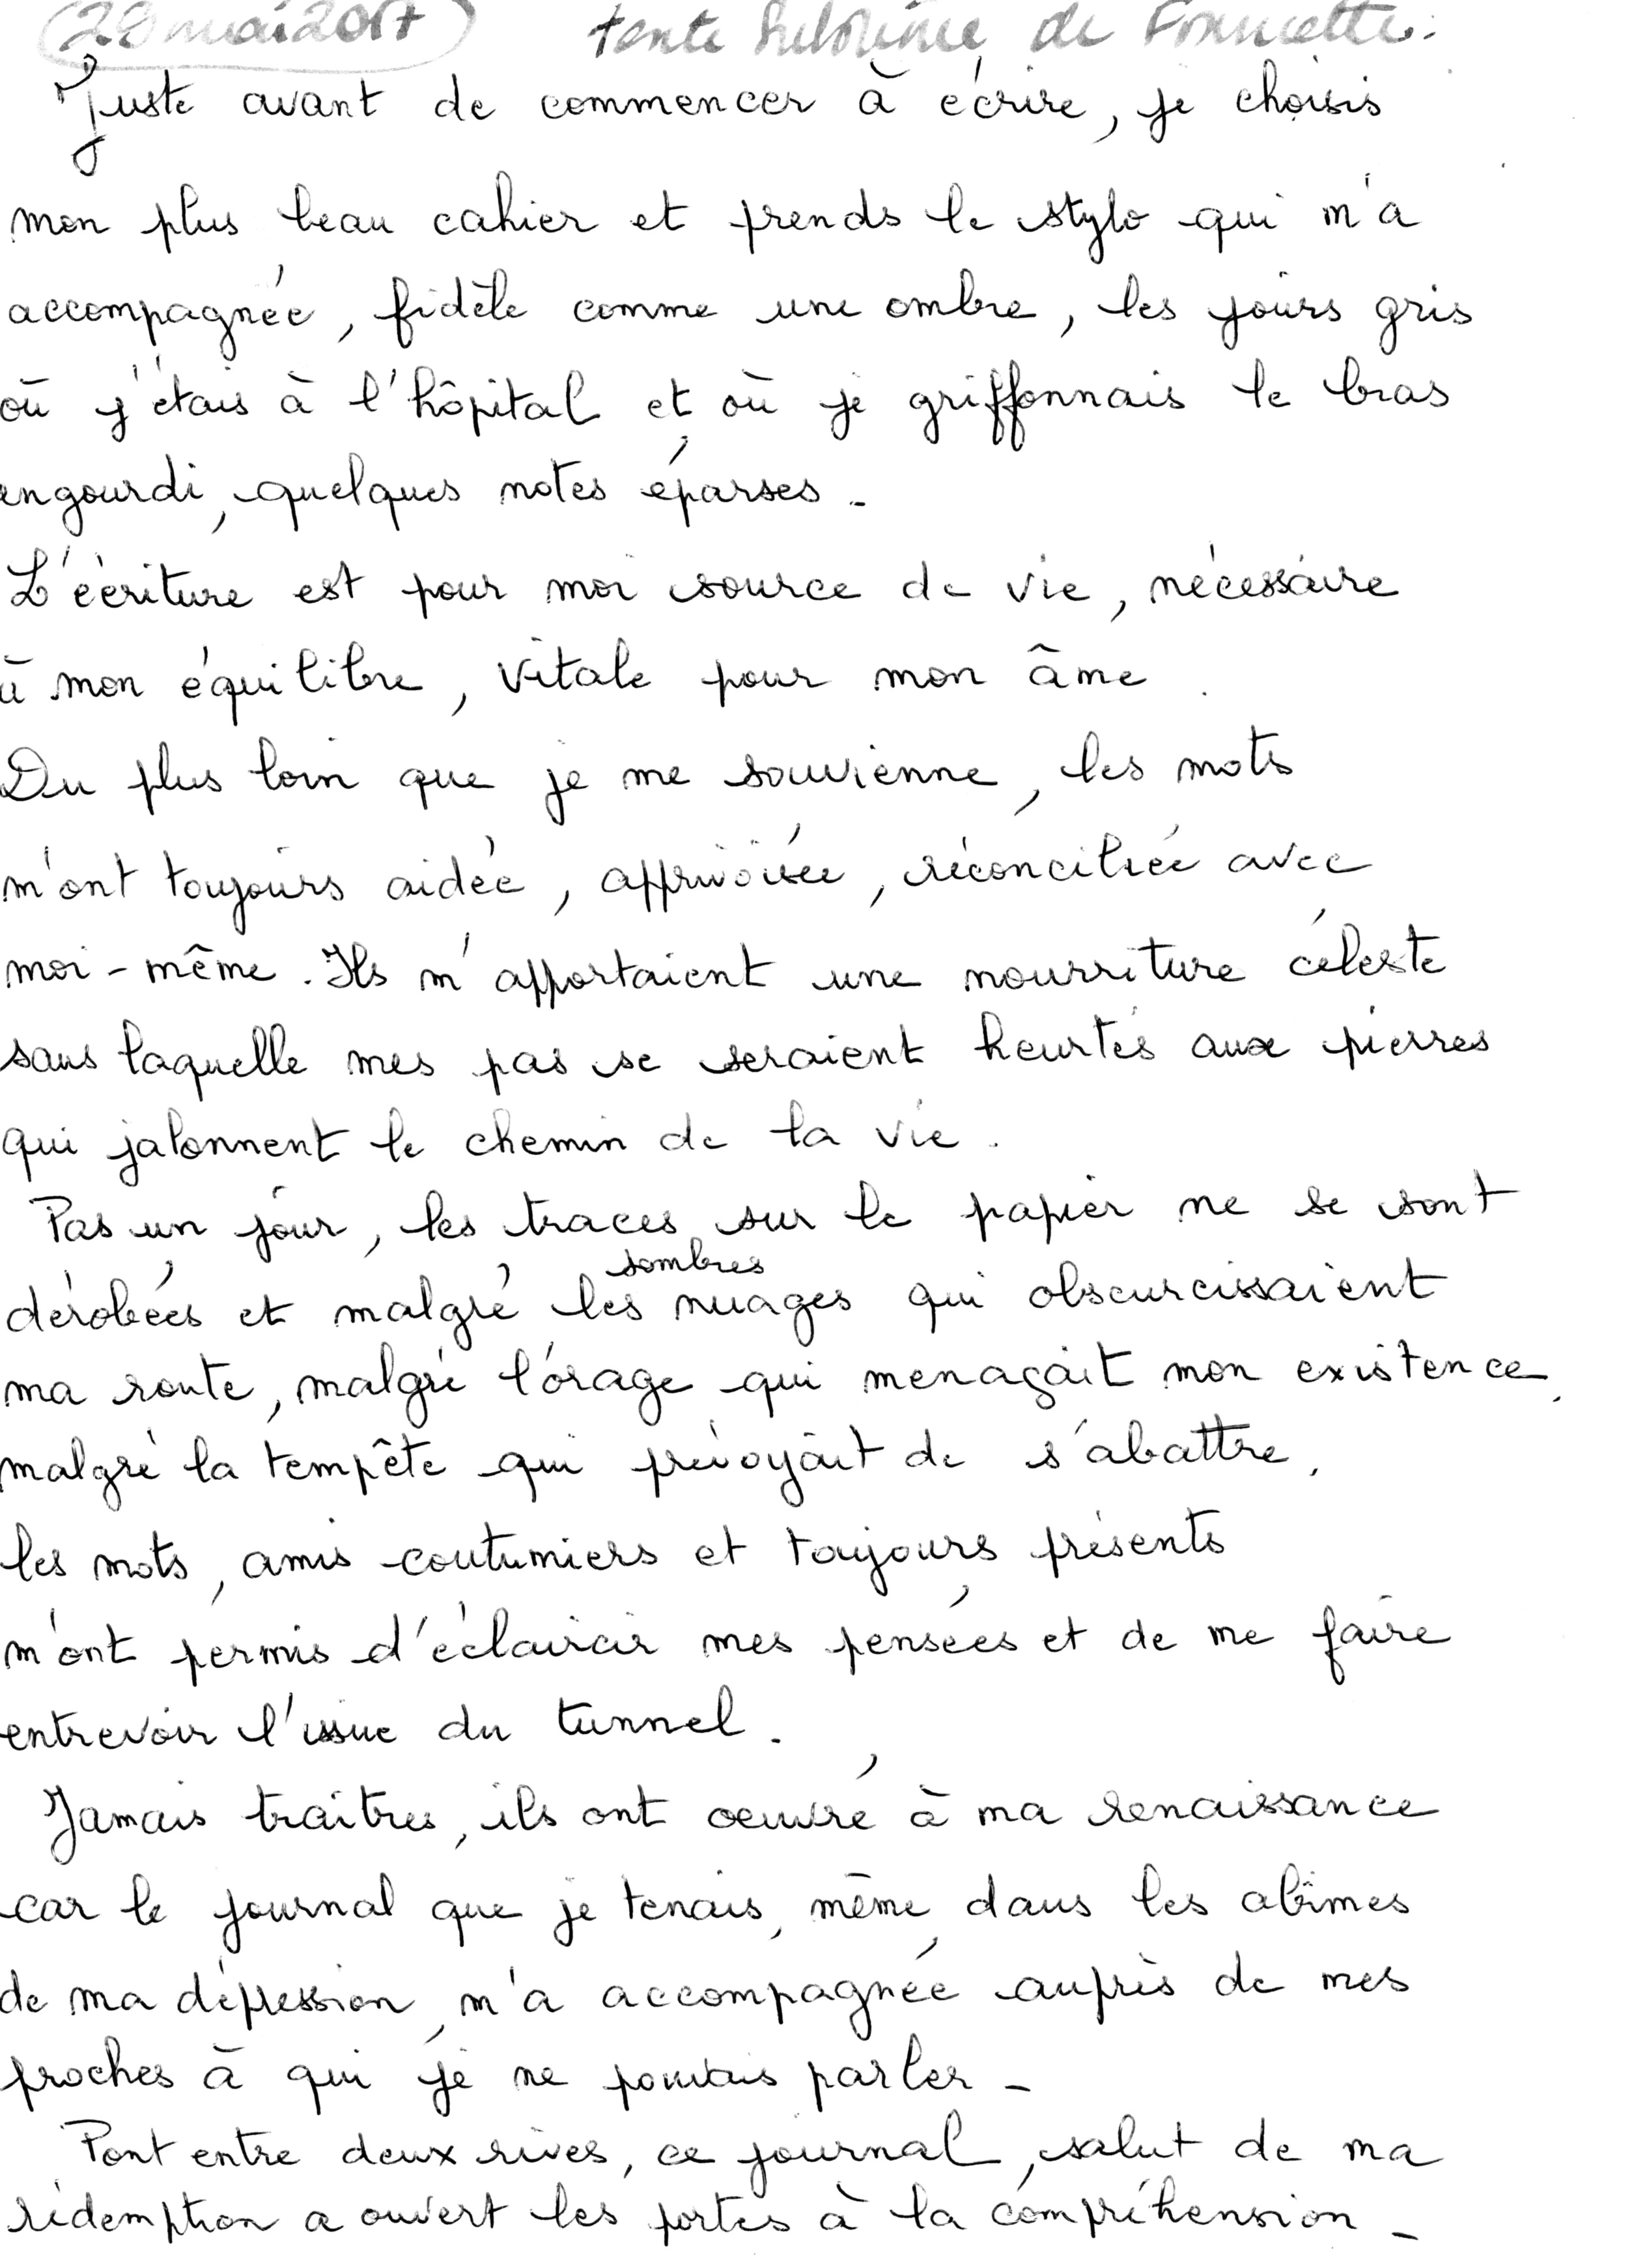 mai 2017 de
Juste avant de commencer à écrire, je choisis
mon plus beau cahier et prends le stylo qui m'a
accompagnée, fidèle comme une ombre, les jours gris
où j'étais à l'hôpital et où je griffonnais le bras
engourdi, quelques notes éparses -
L'écriture est pour moi source de vie, nécessaire
à mon équilibre, vitale pour mon âme.
Du plus loin que je me souvienne, les mots
m'ont toujours aidée, apprivoisée, réconciliée avec
moi-même. Ils m'apportaient une nourriture céleste
sans laquelle mes pas se seraient heurtés aux pierres
qui jalonnent le chemin de la vie.
Pas un jour, les traces sur le papier ne se sont
sombres
dérobées et malgré les nuages qui obscurcissaient
ma route, malgré l'orage qui menaçait mon existence,
malgré la tempête qui prévoyait de s'abattre,
les mots, amis coutumiers et toujours présents
m'ont permis d'éclaircir mes pensées et de me faire
entrevoir l'issue du tunnel.
Jamais traîtres, ils ont oeuvré à ma renaissance
car le journal que je tenais, même dans les abîmes
de ma dépression, m'a accompagnée auprès de mes
proches à qui je ne pouvais parler -
Pont entre deux rives, ce journal, salut de ma
rédemption a ouvert les portes à la compréhension -